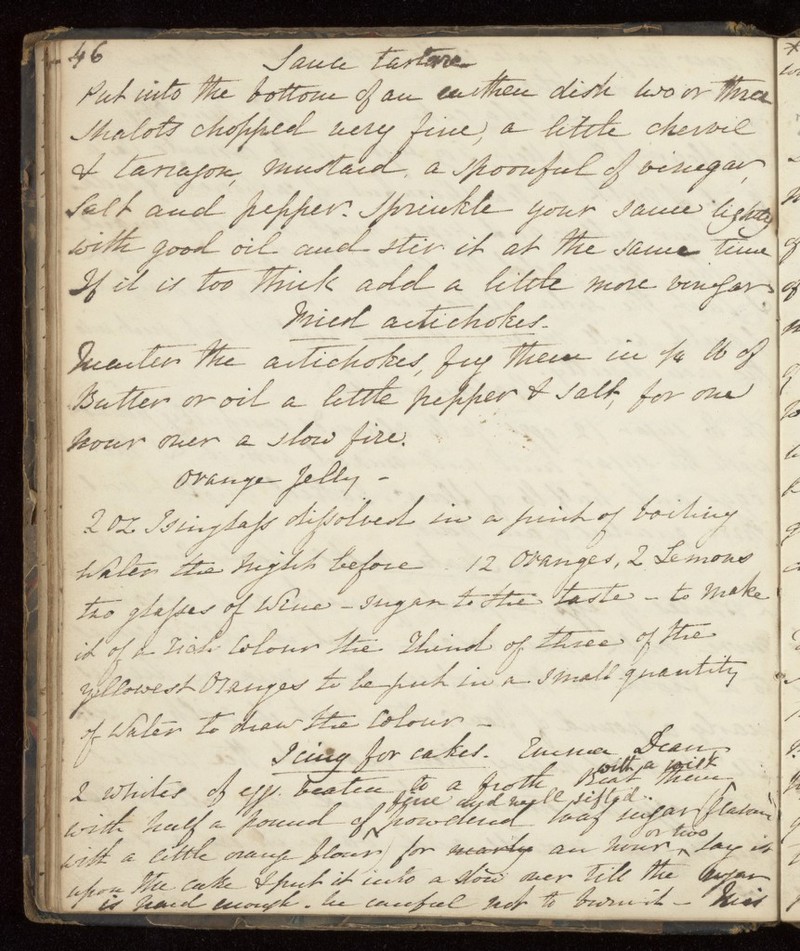 46
Sauce tartare
Put into the bottom of an earthen dish two or three
shalots chopped very fine, a little chervil
& tarragon, mustard, a spoonful of vinegar,
Salt and pepper. Sprinkle your sauce lightly
with good oil and stir it at the same time
If it is too thick add a little more vinegar
Fried artichokes.
Quarter the artichokes, fry them in ¼ lb of
Butter or oil a little pepper & salt, for one
hour over a slow fire.
Orange Jelly -
2 oz Isinglass dissolved in a pint of boiling
Water the night before. 12 Oranges, 2 Lemons
two glasses of Wine - sugar to the taste - to make
it of a rich Colour the Rhind of three of the
yellowest Oranges to be put in a small quantity
of Water to draw the Colour -
Icing for cakes. Emma Dean
with a wisk
2 whites of egg beaten to a froth Beat them
fine and well sifted
with half a pound of powdered loaf sugar (flavour
or two
with a little orange flour) for nearly an hour, lay it
upon the cake & put it into a slow oven till the sugar
is hard enough - be careful not to burn it - This